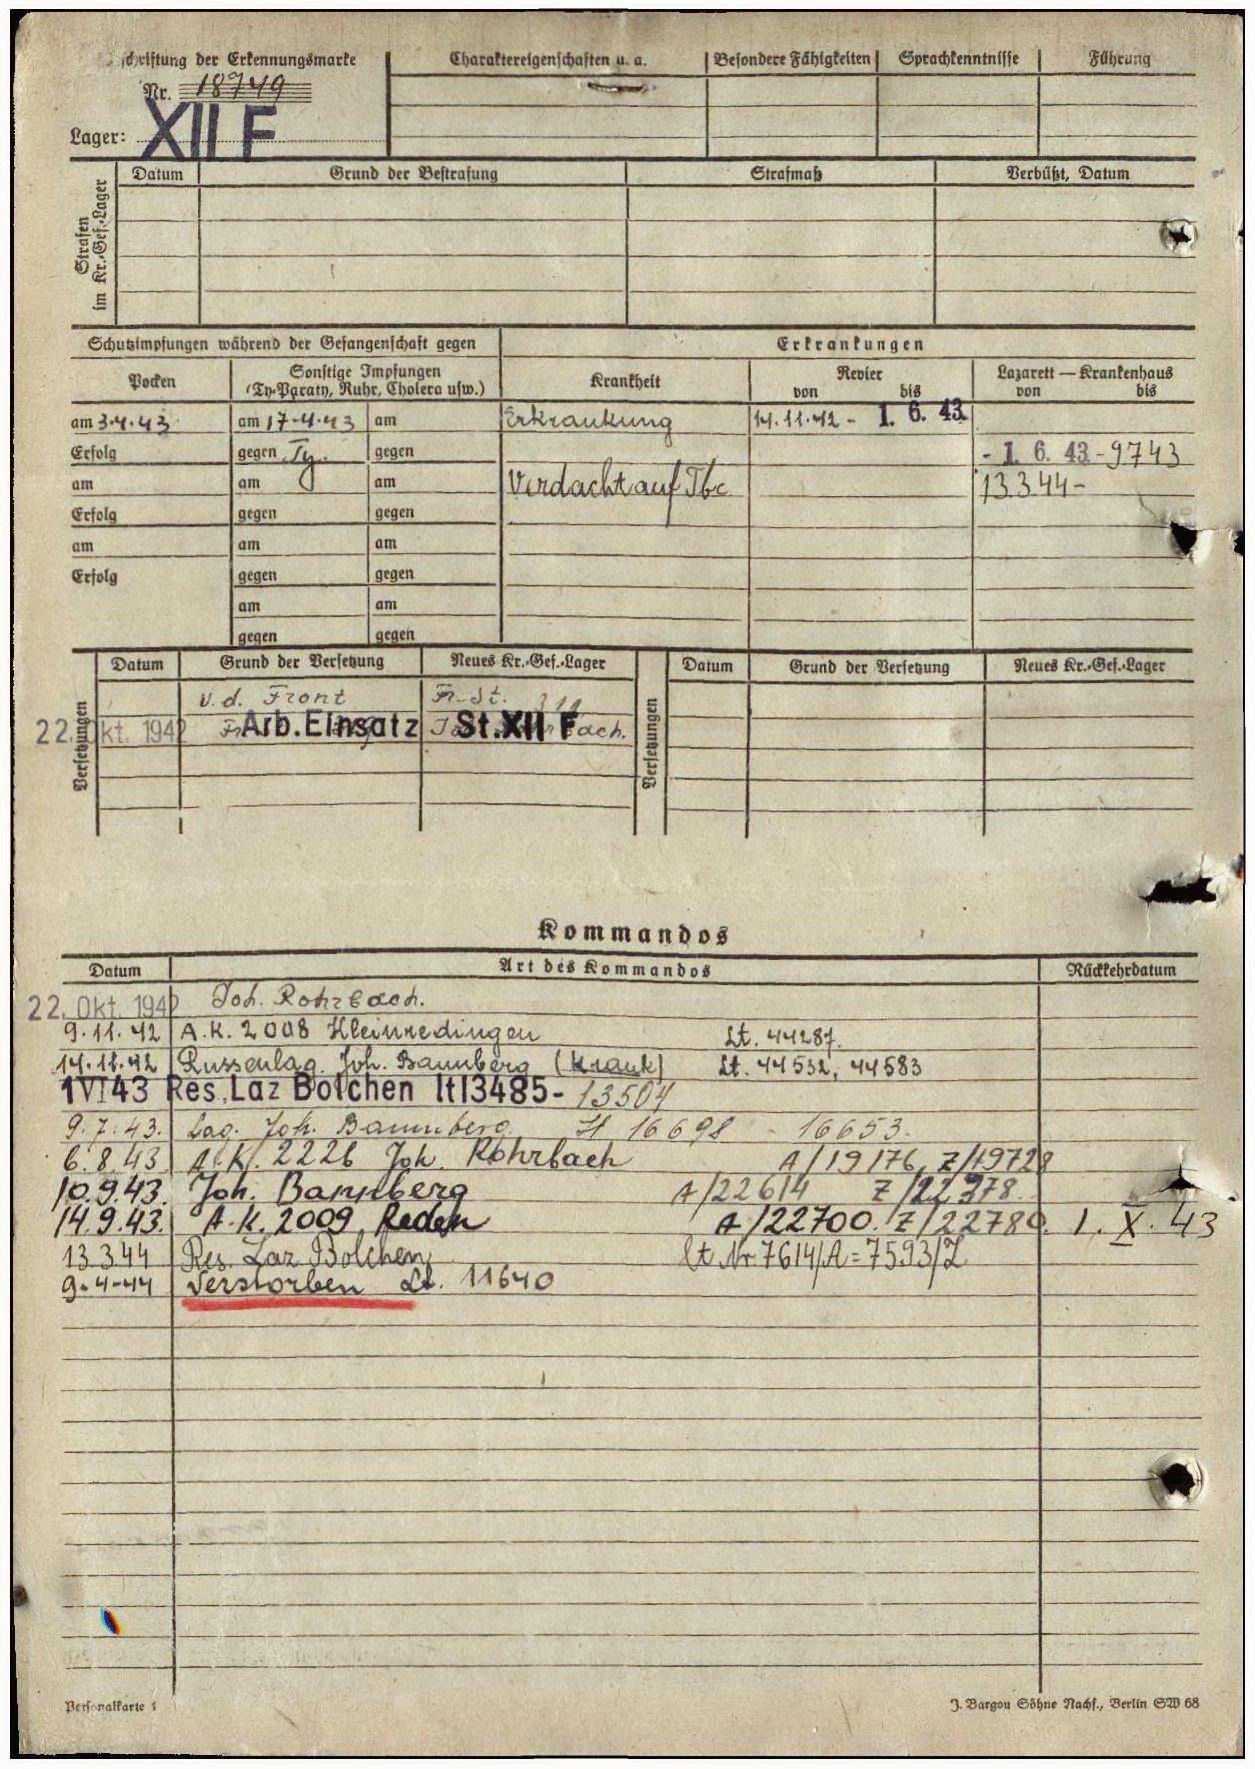 chriftung der Erkennungsmarke
Nr. 18749
Lager: XII F
Charaktereigenschaften u. a.
Besondere Fähigkeiten
Sprachkenntnisse
Führung
Strafen im Kr.-Gef.-Lager
Datum Grund der Bestrafung Strafmaß Verbüßt, Datum
Schutzimpfungen während der Gefangenschaft gegen Erkrankungen
Pocken Sonstige Impfungen (Ty-Paraty, Ruhr, Cholera usw.) Krankheit Revier von bis Lazarett — Krankenhaus von bis
am 3.4.43 am 17.4.43 am Erkrankung 14.11.42 - 1. 6. 43.
Erfolg gegen Ty. gegen - 1. 6. 43 - 9743
am am am Verdacht auf Tbc 13.3.44 -
Erfolg gegen gegen
am am am
Erfolg gegen gegen
am am
gegen gegen
Versetzungen
Datum Grund der Versetzung Neues Kr.-Gef.-Lager
v. d. Front Fr-St.
22. Okt. 1942 Arb. Einsatz St. XII F
Versetzungen
Datum Grund der Versetzung Neues Kr.-Gef.-Lager
Kommandos
Datum Art des Kommandos Rückkehrdatum
22. Okt. 1942 Joh. Rohrbach.
9.11.42 A.K. 2008 Kleinredingen Lt. 44287.
14.11.42 Russenlag. Joh. Bannberg (Krank) Lt. 44532, 44583
1 VI 43 Res. Laz Bolchen lt 13485 - 13504
9.7.43. Lag. Joh. Bannberg 16698 - 16653.
6.8.43 A.K. 2226 Joh. Rohrbach A/19176, Z/19728
10.9.43. Joh. Bannberg A/22614 Z/22378.
14.9.43. A.K. 2009 Reden A/22700. Z/22780. 1. X. 43
13 3 44 Res. Laz Bolchen lt Nr. 7614/A = 7593/Z
9-4-44 Verstorben Lt. 11640
Personalkarte 1
J. Bargou Söhne Nachf., Berlin SW 68